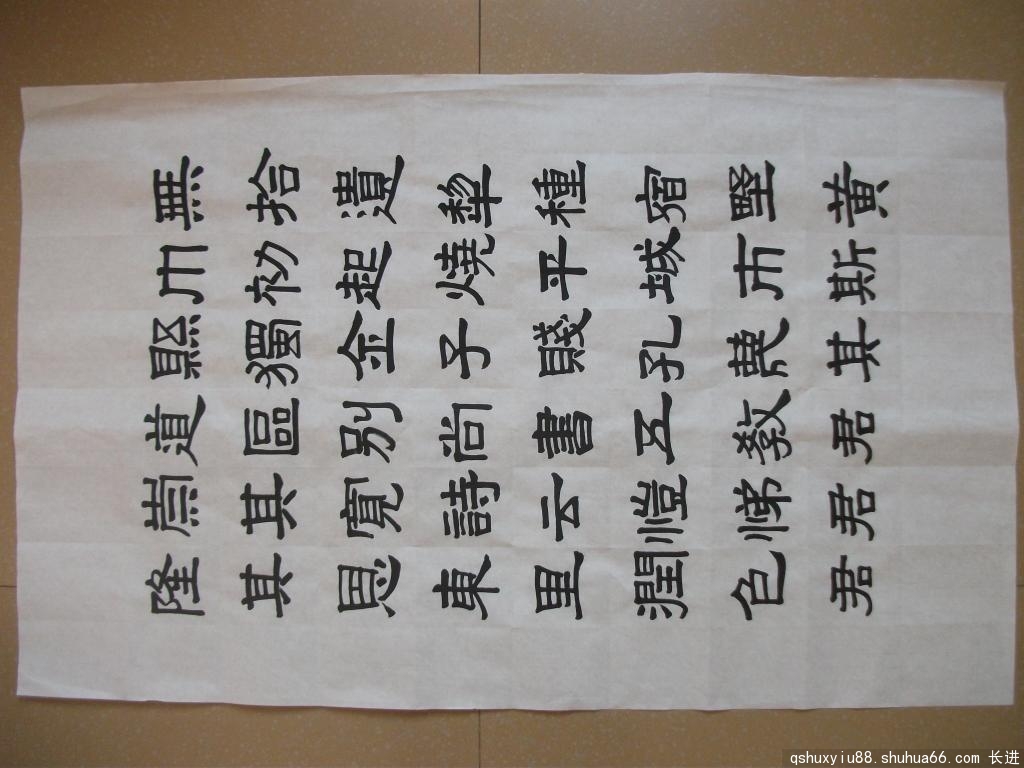 無拾遺犂種宿野黃
巾初起燒平城市斯
縣獨全子賤孔蔑其
道區別尚書五教君
崇其寬詩云愷悌君
隆其恩東里潤色君
qshuxyiu88.shuhua66.com 长进